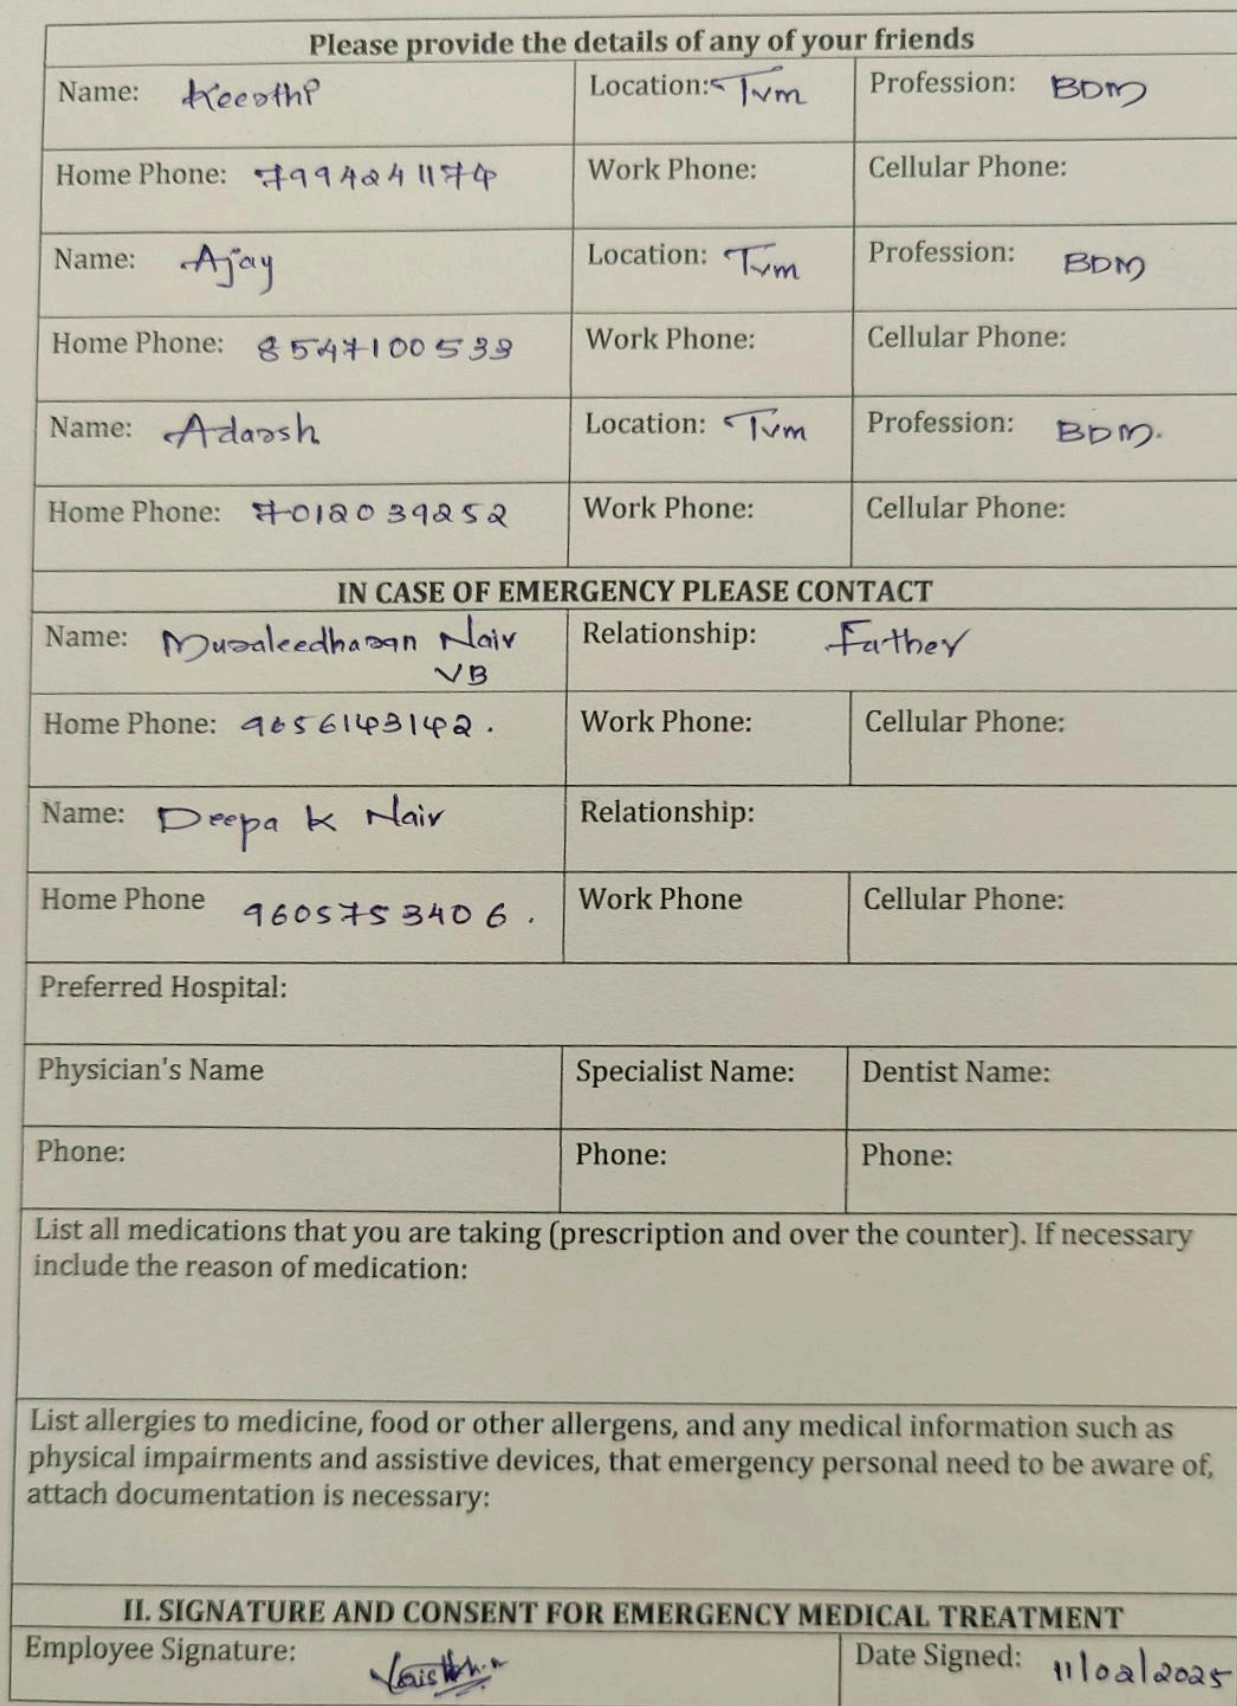 Please provide the details of any of your friends
Name: Keerthi Location: Tvm Profession: BDM
Home Phone: 7994241174 Work Phone: Cellular Phone:
Name: Ajay Location: Tvm Profession: BDM
Home Phone: 8547100533 Work Phone: Cellular Phone:
Name: Adarsh Location: Tvm Profession: BDM.
Home Phone: 7012039252 Work Phone: Cellular Phone:
IN CASE OF EMERGENCY PLEASE CONTACT
Name: Muraleedharan Nair Relationship: Father
VB
Home Phone: 9656143142. Work Phone: Cellular Phone:
Name: Deepa K Nair Relationship:
Home Phone 9605753406. Work Phone Cellular Phone:
Preferred Hospital:
Physician's Name Specialist Name: Dentist Name:
Phone: Phone: Phone:
List all medications that you are taking (prescription and over the counter). If necessary
include the reason of medication:
List allergies to medicine, food or other allergens, and any medical information such as
physical impairments and assistive devices, that emergency personal need to be aware of,
attach documentation is necessary:
II. SIGNATURE AND CONSENT FOR EMERGENCY MEDICAL TREATMENT
Employee Signature: Date Signed: 11/02/2025